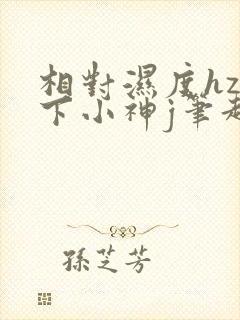 相對濕度hz
下小神j筆
孫芝芳